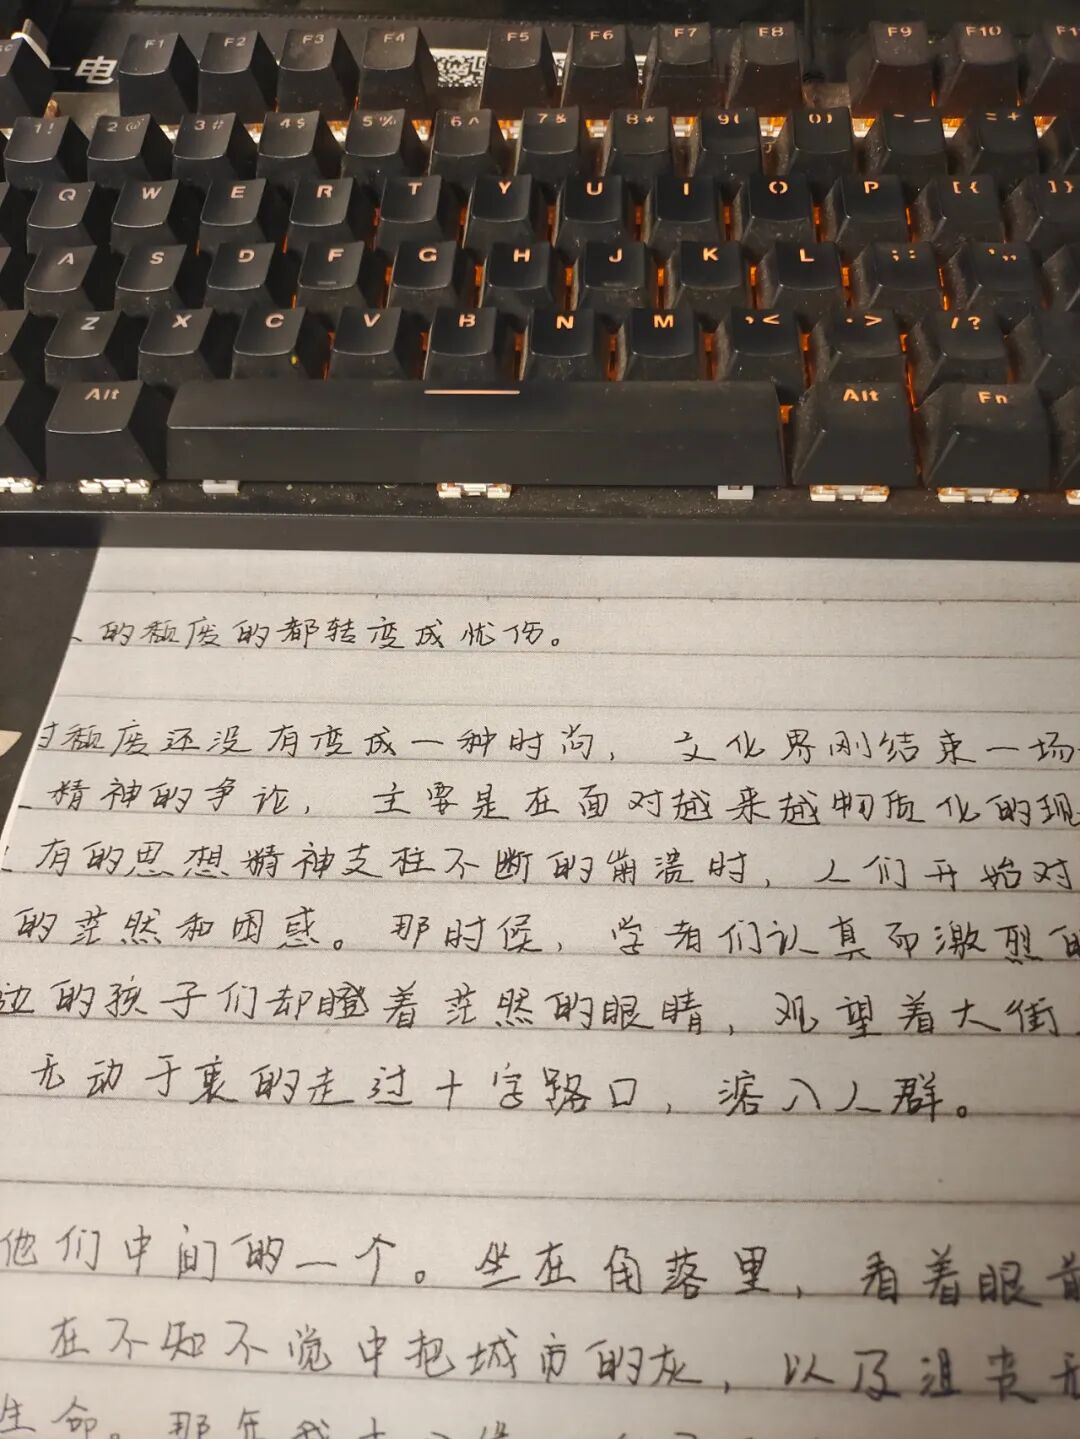 电
F1 F2 F3 F4 F5 F6 F7 F8 F9 F10
1! 2@ 3# 4$ 5% 6^ 7& 8* 9( 0) -_ =+
Q W E R T Y U I O P [{ ]}
A S D F G H J K L ;: '"
Z X C V B N M ,< .> /?
Alt Alt Fn
的颓废的都转变成忧伤。
颓废还没有变成一种时尚，文化界刚结束一场
精神的争论，主要是在面对越来越物质化的现
有的思想精神支柱不断的崩溃时，人们开始对
的茫然和困惑。那时候，学者们认真而激烈的
边的孩子们却瞪着茫然的眼睛，观望着大街
无动于衷的走过十字路口，濳入人群。
他们中间的一个。坐在角落里，看着眼前
在不知不觉中把城市的灰，以及沮丧无
生命。那年我